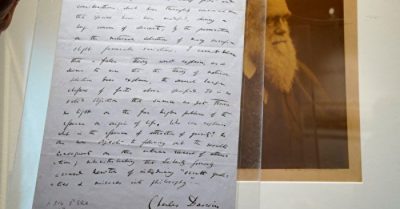 considerations, which have thoroughly convinced me
that species have been modified, during a
long course of descent, by the preservation
or the natural selection of many successive
slight favourable variations. I cannot believe
that a false theory would explain, as it
seems to me that the theory of natural
selection does explain, the several large
classes of facts above specified. It is no
valid objection that science as yet throws
no light on the far higher problem of the
essence or origin of life. Who can explain
what is the essence of attraction of gravity? No
one now objects to following out the results
consequent on this unknown element of attrac-
tion; notwithstanding that Leibnitz formerly
accused Newton of introducing "occult quali-
ties & miracles into philosophy"
Charles Darwin